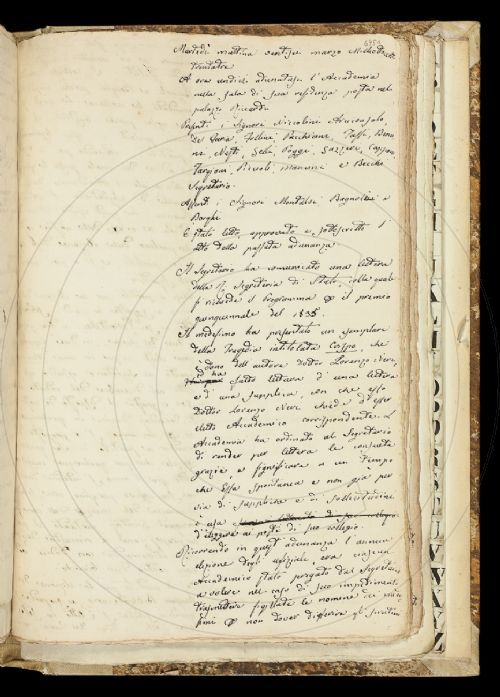 Martedì mattina ventisei marzo Mille ottocento
trentatre
A ore undici adunatasi l'Accademia
nella sala di sua residenza posta nel
palazzo Riccardi
Presenti i Signori Niccolini Arciconsolo,
Del Furia, Follini, Pacchiani,
Nesti, Sella, Poggi, Gazzeri, Capponi,
Targioni, Rivoli, e Becchi
Segretario.
Assenti i Signori Montalvi Bagnoli e
Borghi
È stato letto, approvato e sottoscritto l'
atto della passata adunanza
Il Segretario ha comunicato una lettera
della Segreteria di Stato, colla quale
si richiede il Programma il premio
quinquennale del 1835.
Il medesimo ha presentato un esemplare
della Tragedia intitolata Corso, che
dono dell'autore dottor Lorenzo Neri,
ha fatto lettura d'una lettera
e d'una supplica, con che esso
Dottor Lorenzo Neri chiede d'esser
eletto Accademico corrispondente. L'
Accademia ha ordinato al Segretario
di render per lettera le consuete
grazie, e significare a un tempo
che essa spontanea e non già per
via di suppliche e di sollecitudini
è usa
d'eleggere ai posti di suo collegio.
Ricorrendo in quest'adunanza l'annua
elezione degli uffiziali, era ciascun
Accademico stato pregato dal Segretario
a volere nel caso di suo impedimento
trasmettere sigillate le nomine
non dover differire gli